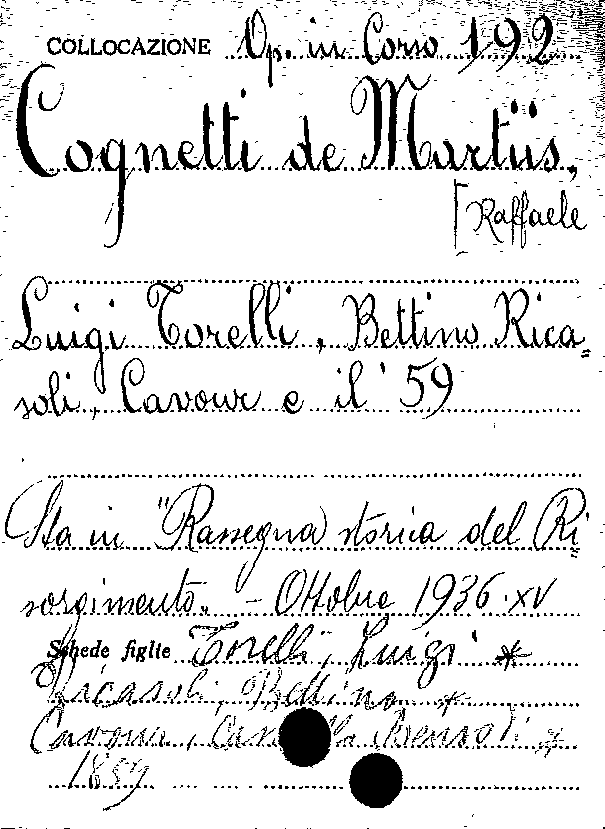 COLLOCAZIONE Op. in Corso 192
Cognetti de Martiis,
[Raffaele
Luigi Torelli, Bettino Rica=
soli, Cavour e il '59
Sta in "Rassegna storica del Ri=
sorgimento„ - Ottobre 1936-XV
Schede figlie Torelli, Luigi *
Ricasoli, Bettino *
Cavour, Benso di *
1859